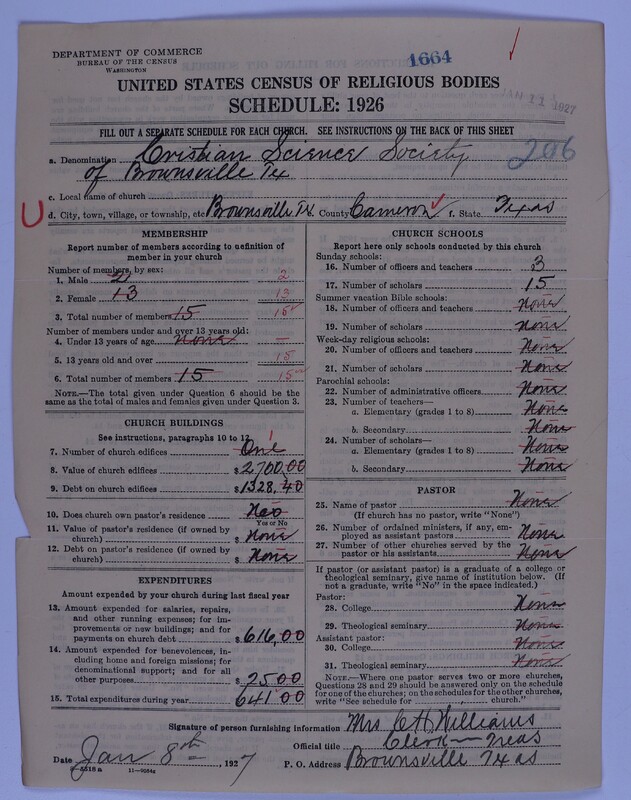 DEPARTMENT OF COMMERCE
BUREAU OF THE CENSUS
WASHINGTON
1664
UNITED STATES CENSUS OF RELIGIOUS BODIES
SCHEDULE: 1926
JAN 11 1927
FILL OUT A SEPARATE SCHEDULE FOR EACH CHURCH. SEE INSTRUCTIONS ON THE BACK OF THIS SHEET
206
a. Denomination Cristian Science Society
of Brownsville Tex
c. Local name of church
U d. City, town, village, or township, etc Brownsville Tx. County Cameron f. State Texas
MEMBERSHIP
Report number of members according to definition of
member in your church
Number of members, by sex:
1. Male 2 2
2. Female 13 13
3. Total number of members 15 15
Number of members under and over 13 years old:
4. Under 13 years of age none —
5. 13 years old and over 15
6. Total number of members 15 15
NOTE.—The total given under Question 6 should be
same as the total of males and females given under Question 3.
CHURCH BUILDINGS
See instructions, paragraphs 10 to 12
7. Number of church edifices One 1
8. Value of church edifices $ 2,700,00
9. Debt on church edifices $ 1328,40
10. Does church own pastor's residence
Yes or No
11. Value of pastor's residence (if owned by
church) $ None
12. Debt on pastor's residence (if owned by
church) $ None
EXPENDITURES
Amount expended by your church during last fiscal year
13. Amount expended for salaries, repairs,
and other running expenses; for im-
provements or new buildings; and for
payments on church debt $ 616,00
14. Amount expended for benevolences, in-
cluding home and foreign missions; for
denominational support; and for all
other purposes $ 2500
15. Total expenditures during year 641 00
CHURCH SCHOOLS
Report here only schools conducted by this church
Sunday schools:
16. Number of officers and teachers 3
17. Number of scholars 15
Summer vacation Bible schools:
18. Number of officers and teachers None
19. Number of scholars None
Week-day religious schools:
20. Number of officers and teachers None
21. Number of scholars None
Parochial schools:
22. Number of administrative officers None
23. Number of teachers—
a. Elementary (grades 1 to 8) None
b. Secondary None
24. Number of scholars—
a. Elementary (grades 1 to 8) None
b. Secondary None
PASTOR
25. Name of pastor None
(If church has no pastor, write "None")
26. Number of ordained ministers, if any, em-
ployed as assistant pastors None
27. Number of other churches served by the
pastor or his assistants None
If pastor (or assistant pastor) is a graduate of a college or
theological seminary, give name of institution below. (If
not a graduate, write "No" in the space indicated.)
Pastor:
28. College None
29. Theological seminary None
Assistant pastor:
30. College None
31. Theological seminary None
NOTE.—Where one pastor serves two or more churches,
Question 28 and 29 should be answered only on the schedule
for one of the churches; on the schedules for the other churches,
write "See schedule for church."
Signature of person furnishing information Mrs C H Williams
Official title Clerk — Treas
Date Jan 8th, 1927 P. O. Address Brownsville Texas
11—9084